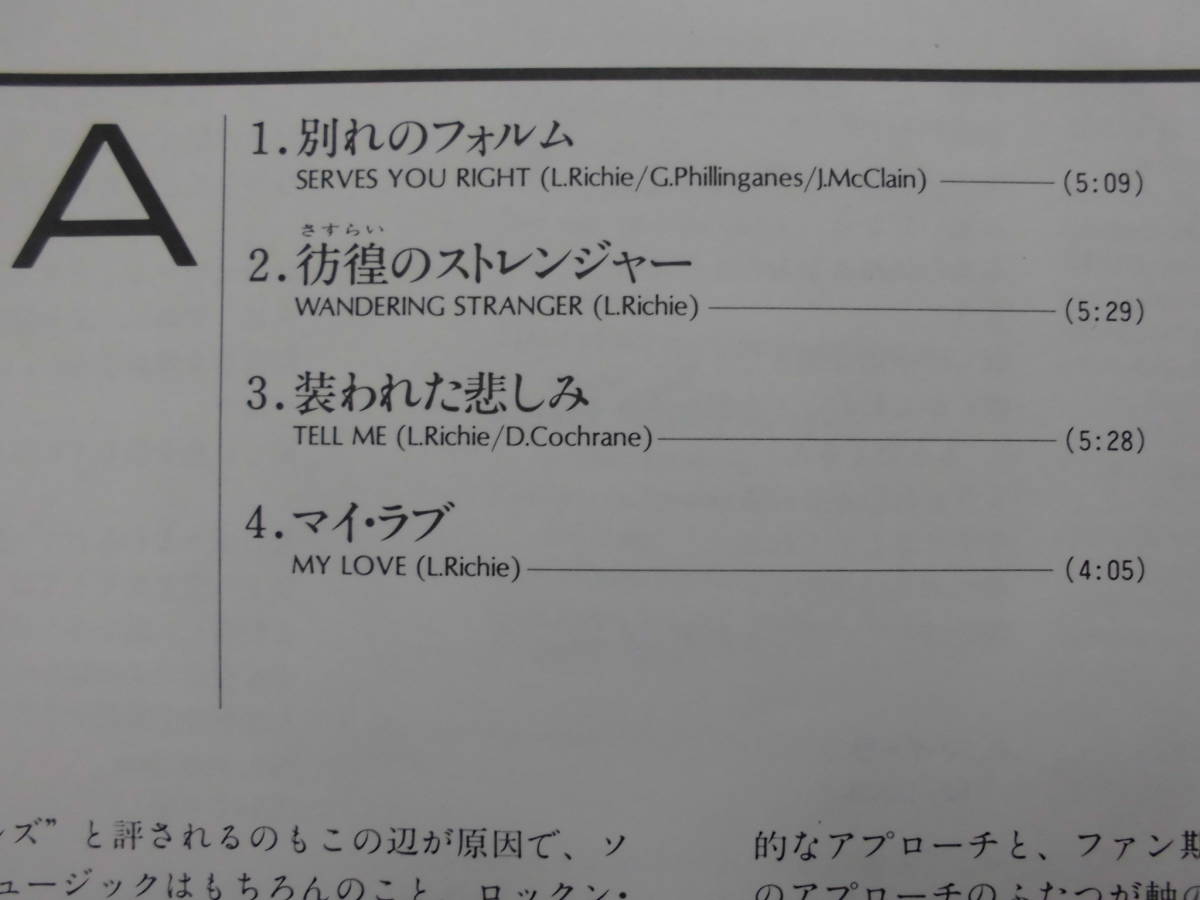 A
1.別れのフォルム
SERVES YOU RIGHT (L.Richie/G.Phillinganes/J.McClain) (5:09)
さすらい
2.彷徨のストレンジャー
WANDERING STRANGER (L.Richie) (5:29)
3.装われた悲しみ
TELL ME (L.Richie/D.Cochrane) (5:28)
4.マイ・ラブ
MY LOVE (L.Richie) (4:05)
ンズ”と評されるのもこの辺が原因で、ソ
ュージックはもちろんのこと、ロックン・
的なアプローチと、ファン
のアプローチのふたつが軸の